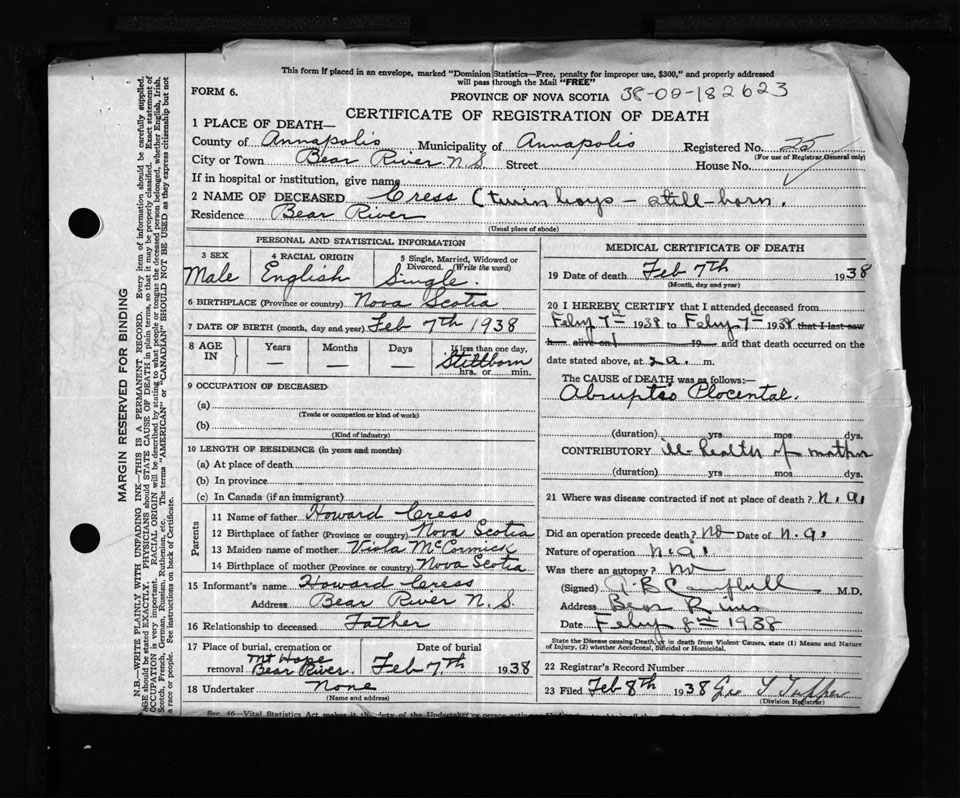 This form if placed in an envelope, marked "Dominion Statistics—Free, penalty for improper use, $300," and properly addressed
will pass through the Mail "FREE"
FORM 6.
PROVINCE OF NOVA SCOTIA 38-02-182623
CERTIFICATE OF REGISTRATION OF DEATH
1 PLACE OF DEATH—
County of Annapolis Municipality of Annapolis Registered No. 25
(For use of Registrar General only)
City or Town Bear River N.S Street House No.
If in hospital or institution, give name
2 NAME OF DECEASED Cress (twin boys - still-born.
Residence Bear River
(Usual place of abode)
PERSONAL AND STATISTICAL INFORMATION
3 SEX 4 RACIAL ORIGIN 5 Single, Married, Widowed or
Divorced. (Write the word)
Male English Single.
6 BIRTHPLACE (Province or country) Nova Scotia
7 DATE OF BIRTH (month, day and year) Feb 7th 1938
8 AGE IN Years Months Days If less than one day,
— — — Stillborn
hrs. or min.
9 OCCUPATION OF DECEASED
(a)
(Trade or occupation or kind of work)
(b)
(Kind of industry)
10 LENGTH OF RESIDENCE (in years and months)
(a) At place of death
(b) In province
(c) In Canada (if an immigrant)
Parents
11 Name of father Howard Cress
12 Birthplace of father (Province or country) Nova Scotia
13 Maiden name of mother Viola McCormick
14 Birthplace of mother (Province or country) Nova Scotia
15 Informant's name Howard Cress
Address Bear River N.S
16 Relationship to deceased Father
17 Place of burial, cremation or Date of burial
removal Mt Hope
Bear River. Feb 7th 1938
18 Undertaker None
(Name and address)
MEDICAL CERTIFICATE OF DEATH
19 Date of death Feb 7th 1938
(Month, day and year)
20 I HEREBY CERTIFY that I attended deceased from
Feby 7th 1938 to Feby 7th 1938 that I last saw
h alive on 19 and that death occurred on the
date stated above, at 2 a. m.
The CAUSE of DEATH was as follows:—
Abruptio Placental.
(duration) yrs mos dys.
CONTRIBUTORY ill-health of mother
(duration) yrs mos dys.
21 Where was disease contracted if not at place of death? n.a.
Did an operation precede death? no Date of n.a.
Nature of operation n.a.
Was there an autopsy? no
(Signed) A B Campbell M.D.
Address Bear River
Date Feby 8th 1938
State the Disease causing Death, or in death from Violent Causes, state (1) Means and Nature
of Injury, (2) whether Accidental, Suicidal or Homicidal.
22 Registrar's Record Number
23 Filed Feb 8th 1938 Geo Tupper
(Division Registrar)
Sec. 46—Vital Statistics Act makes it the duty of the Undertaker or person
MARGIN RESERVED FOR BINDING
N.B.—WRITE PLAINLY WITH UNFADING INK—THIS IS A PERMANENT RECORD. Every item of information should be carefully supplied.
AGE should be stated EXACTLY. PHYSICIANS should STATE CAUSE OF DEATH in plain terms, so that it may be properly classified. Exact statement of
OCCUPATION is very important. RACIAL ORIGIN will be described by stating to what people or tongue the deceased person belonged, whether English, Irish,
Scotch, French, German, Russian, Ruthenian, etc. The terms "AMERICAN" or "CANADIAN" SHOULD NOT BE USED as they express citizenship but not
a race or people. See instructions on back of Certificate.